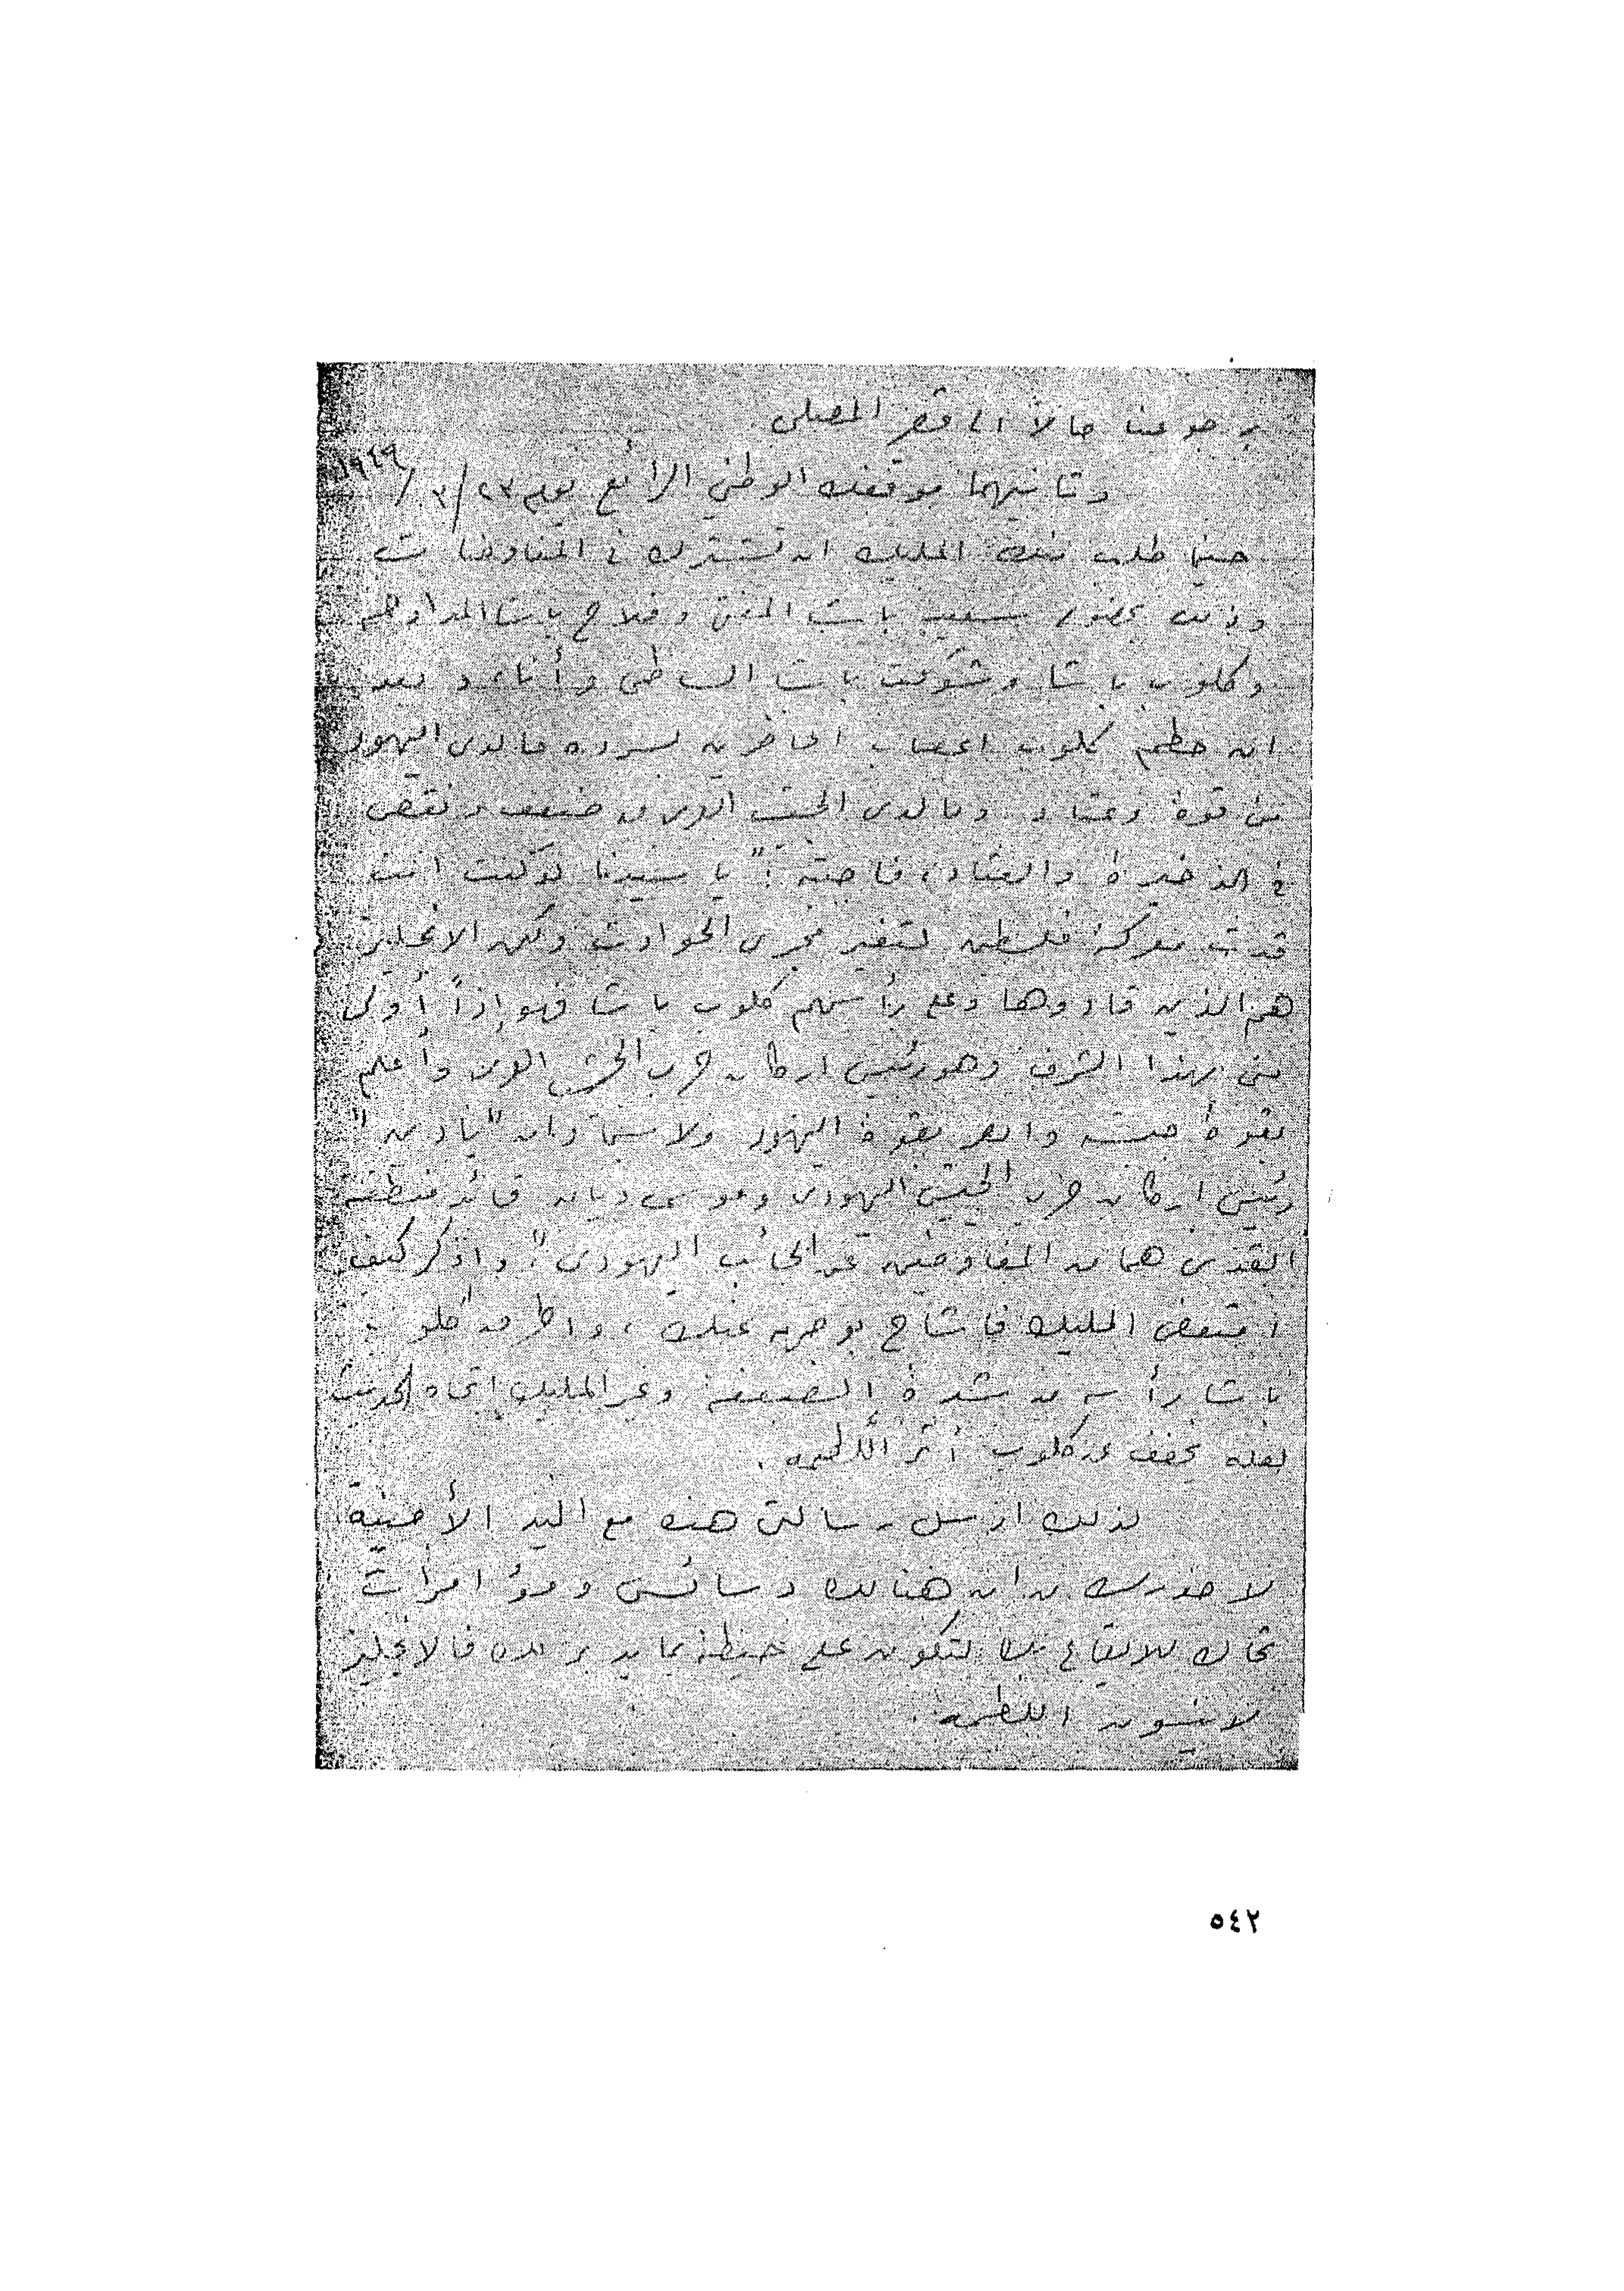 برجوعنا حالاً الى قصر المصلى
وثانيهما موقفك الوطني الرائع يوم ٢٣/٣/١٩٤٩
حينما طلب منك المليك ان تشترك في المفاوضات
وذلك بحضور سعيد باشا المفتي وفلاح باشا المدادحه
وكلوب باشا وشوكت باشا الساطي وأنا، وبعد
ان حطم كلوب اعصاب الحاضرين بسرده ما لدى اليهود
من قوة وعتاد وما لدى الجيش العربي من ضعف ونقص
في الذخيرة والعتاد، فاجبته: "يا سيدنا لو كنت انت
قدت معركة فلسطين لتغير مجرى الحوادث ولكن الانجليز
هم الذين قادوها وعلى رأسهم كلوب باشا فهو إذاً أولى
مني بهذا الشرف وهو رئيس اركان حرب الجيش العربي وأعلم
بقوة جيشه وابصر بقوة اليهود ولا سيما وان "يادين"
رئيس اركان حرب الجيش اليهودي وموسى ديان قائد منطقة
القدس هما من المفاوضين عن الجانب اليهودي"، واذكر كيف
امتعض المليك فاشاح بوجهه عنك، واطرق كلوب
باشا رأسه من شدة الصفعة وغير المليك اتجاه الحديث
لعله يخفف عن كلوب أثر اللطمة.
لذلك ارسل رسالتي هذه مع اليد الأمينة
لاحذرك من ان هنالك دسائس ومؤامرات
تحاك للايقاع بك لتكون على حيطة مما يدبر لك فالانجليز
لا ينسون اللطمة.
٥٤٢